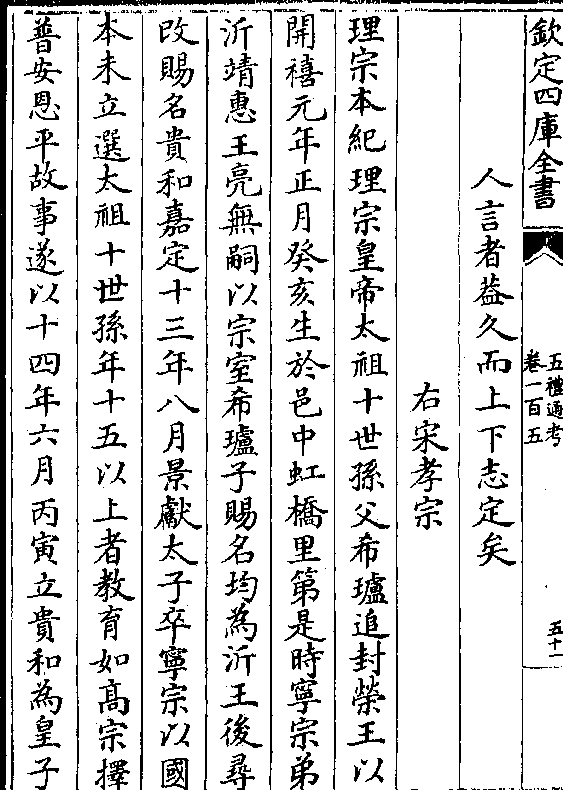 欽定四庫全書
五禮通考
卷一百五
五十一
人言者葢久而上下志定矣
右宋孝宗
理宗本紀理宗皇帝太祖十世孫父希瓐追封榮王以
開禧元年正月癸亥生於邑中虹橋里第是時寧宗弟
沂靖惠王亮無嗣以宗室希瓐子賜名均為沂王後尋
改賜名貴和嘉定十三年八月景獻太子卒寧宗以國
本未立選太祖十世孫年十五以上者教育如髙宗擇
普安恩平故事遂以十四年六月丙寅立貴和為皇子